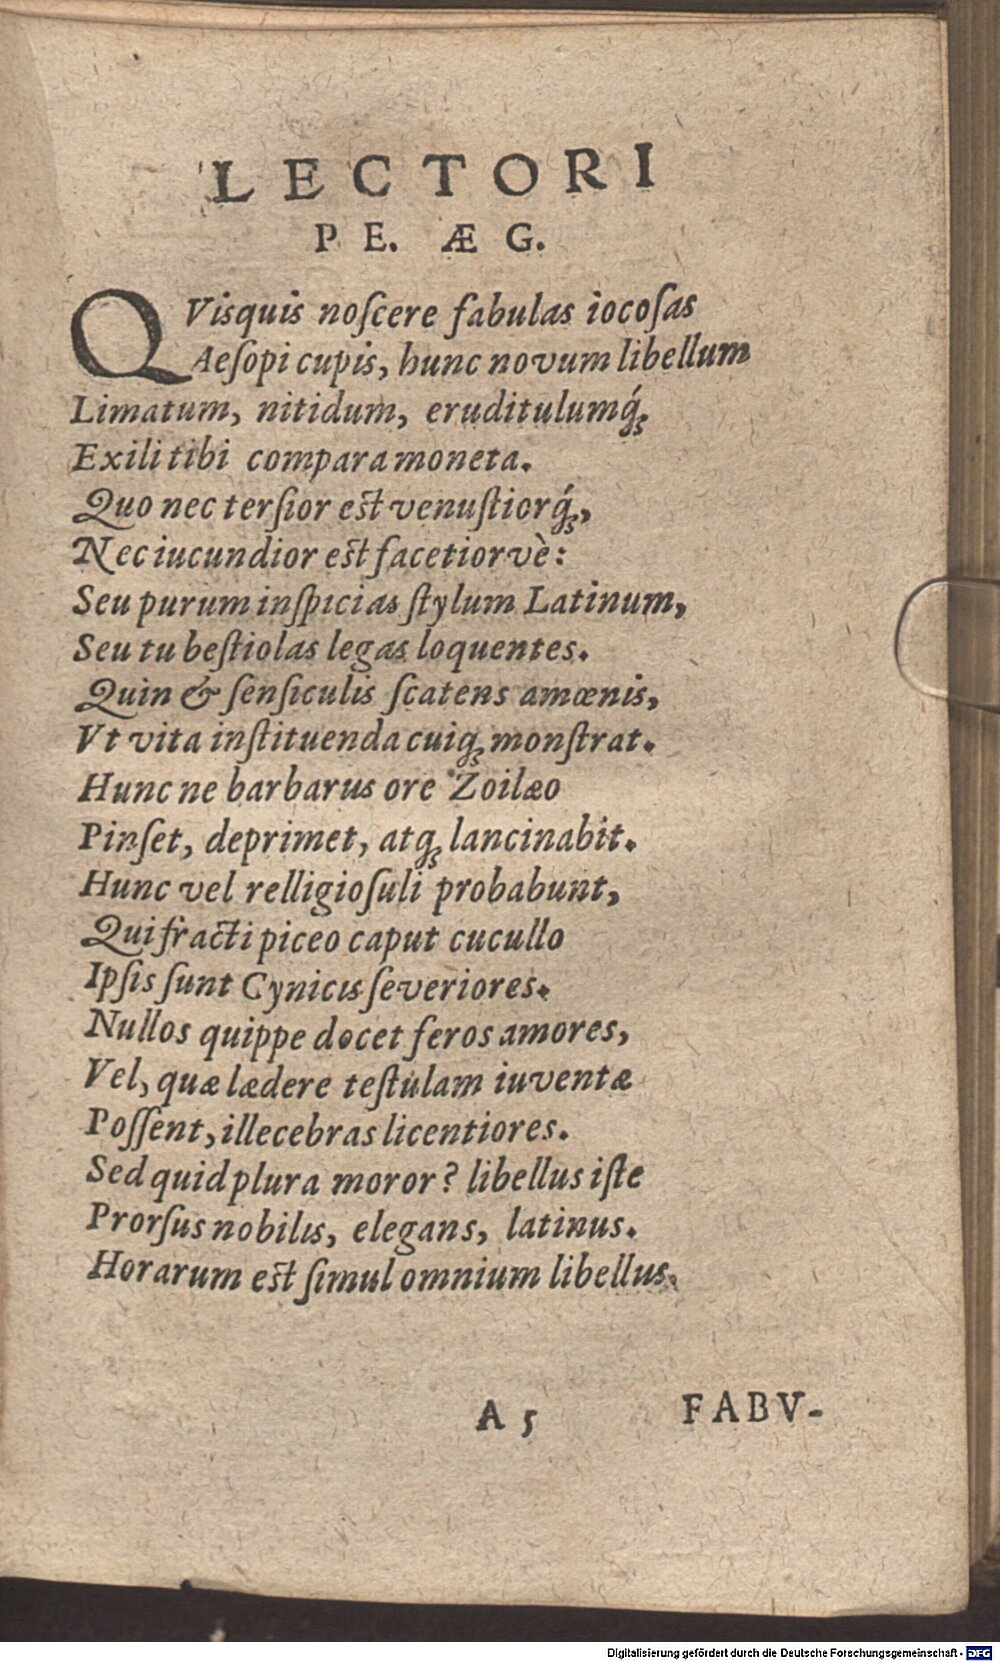 LECTORI
PE. ÆG.
QVisquis noſcere fabulas iocoſas
Aeſopi cupis, hunc novum libellum
Limatum, nitidum, eruditulumq́;
Exili tibi compara moneta.
Quo nec terſior eſt venuſtiorq́;,
Nec iucundior eſt facetiorvè:
Seu purum inſpicias ſtylum Latinum,
Seu tu beſtiolas legas loquentes.
Quin & ſenſiculis ſcatens amœnis,
Vt vita inſtituenda cuiq; monſtrat.
Hunc ne barbarus ore Zoilæo
Pinſet, deprimet, atq; lancinabit.
Hunc vel relligioſuli probabunt,
Qui fracti piceo caput cucullo
Ipſis ſunt Cynicis ſeveriores.
Nullos quippe docet feros amores,
Vel, quæ lædere teſtulam iuventæ
Poſſent, illecebras licentiores.
Sed quid plura moror? libellus iſte
Prorſus nobilis, elegans, latinus.
Horarum eſt ſimul omnium libellus.
A 5 FABV-
Digitalisierung gefördert durch die Deutsche Forschungsgemeinschaft - DFG